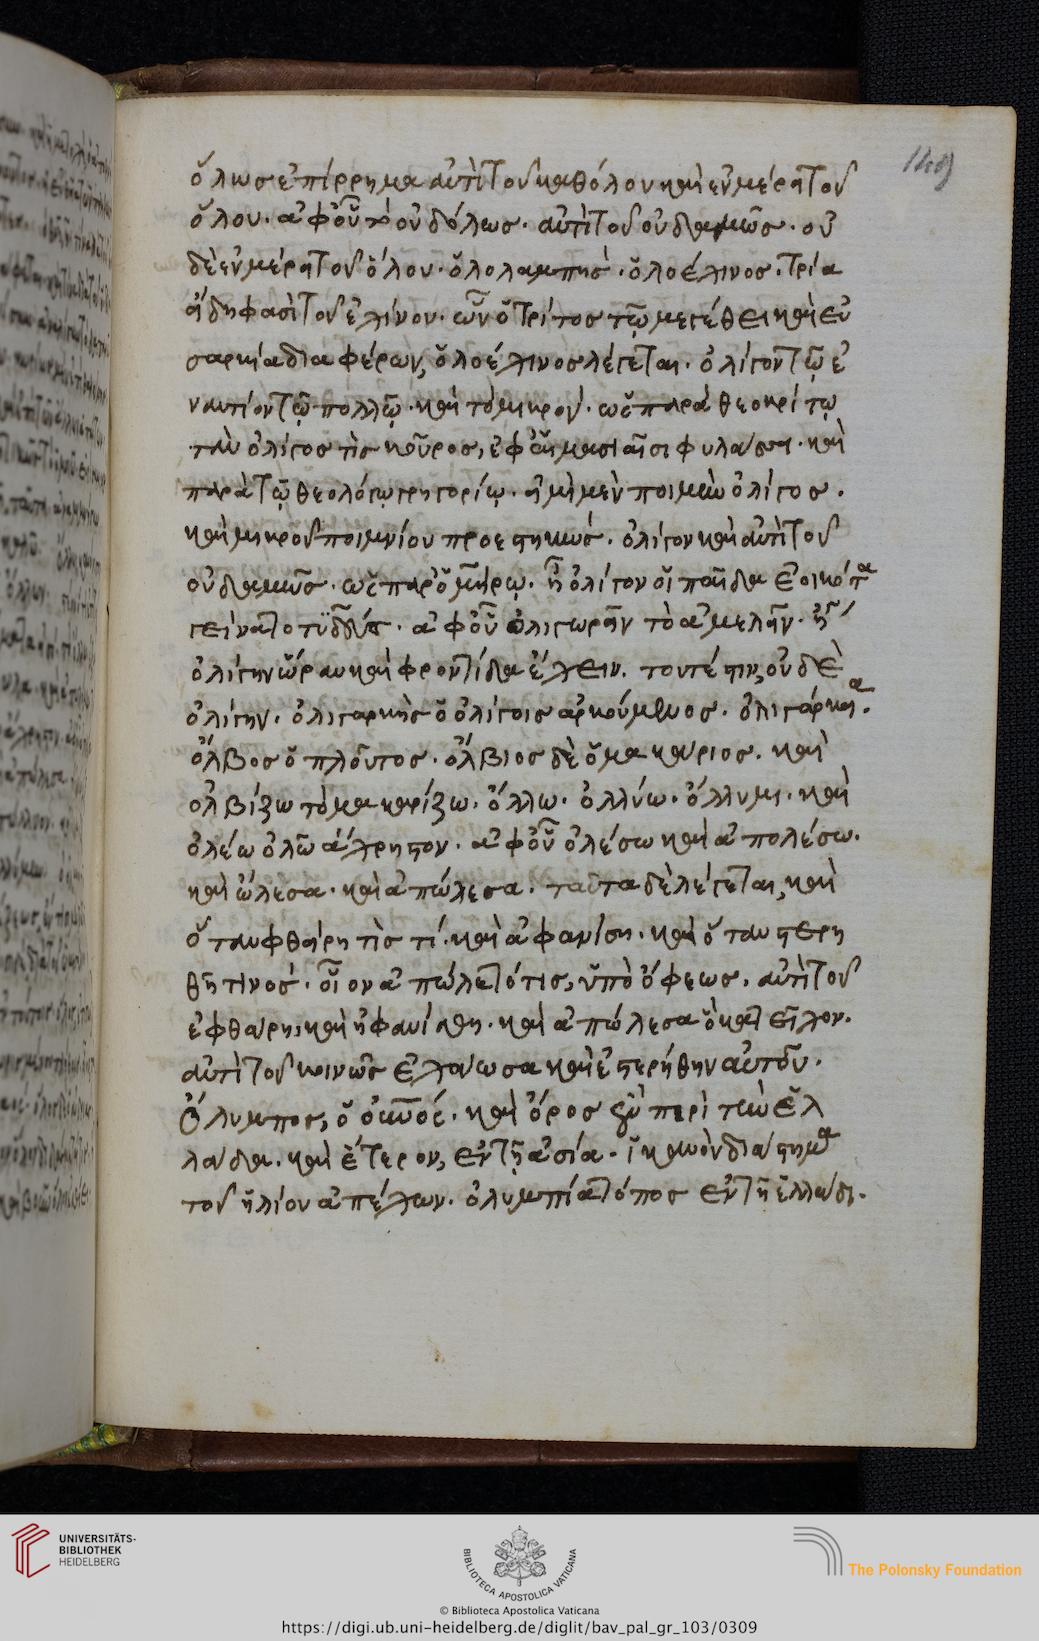 148
ὅλως ἐπίρρημα ἀντὶ τοῦ καθόλου καὶ ἐν μέρη τοῦ
ὅλου· ἀφ' οὗ τὸ οὐδόλως· ἀντὶ τοῦ οὐδαμῶς· οὐ
δὲ ἐν μέρη τοῦ ὅλου· ὁλολαμπής· ὁλοέλινος· τρία
εἴδη φασὶ τοῦ ἐλίνου· ὧν ὁ τρίτος τῷ μεγέθει καὶ εὐ
σαρκία διαφέρων, ὁλοέλινος λέγεται· ὀλίγον τῷ ἐ
ναντίον τῷ πολλῷ· καὶ τὸ μικρόν· ὡς παρὰ θεοκρίτῳ
τὰν ὀλίγος τὶς κοῦρος, ἐφ' αἱμασιαῖσι φυλάσσει· καὶ
παρὰ τῷ θεολόγῳ γρηγορίῳ· εἰμὶ μὲν ποιμὴν ὀλίγος·
καὶ μικροῦ ποιμνίου προεστηκώς· ὀλίγον καὶ ἀντὶ τοῦ
οὐδαμῶς· ὡς παρ' ὁμήρῳ· ἢ ὀλίγον οἷ παῖδα ἐοικότα
γείνατο τυδεύς· ἀφ' οὗ ὀλιγωρεῖν τὸ ἀμελεῖν·
ὀλίγην ὥραν καὶ φροντίδα ἔχειν· τουτέστιν, οὐδὲ
ὀλίγην· ὀλιγαρκὴς ὁ ὀλίγοις ἀρκούμενος· ὀλιγάρκεια·
ὄλβος ὁ πλοῦτος· ὄλβιος δὲ ὁ μακάριος· καὶ
ὀλβίζω τὸ μακαρίζω· ὄλλω· ὀλλύω· ὄλλυμι· καὶ
ὀλέω ὀλῶ ἄχρηστον· ἀφ' οὗ ὀλέσω καὶ ἀπολέσω·
καὶ ὤλεσα· καὶ ἀπώλεσα· ταῦτα δὲ λέγεται, καὶ
ὅταν φθείρη τὶς τί· καὶ ἀφανίση· καὶ ὅταν στερη
θῆ τινός· οἷον ἀπώλετό τις, ὑπὸ ὄφεως, ἀντὶ τοῦ
ἐφθάρη, καὶ ἠφανίσθη· καὶ ἀπώλεσα ὃ κατεῖχον·
ἀντὶ τοῦ κοινῶς ἐχάωσα καὶ ἐστερήθην αὐτοῦ·
Ὄλυμπος, ὁ οὐνός· καὶ ὄρος περὶ τὴν ἑλ
λάδα· καὶ ἕτερον, ἐν τῇ ἀσία· ἱκανὸν διάστημα
τοῦ ἡλίου ἀπέχων· ὀλυμπία τόπος ἐν τῇ ἑλλάδι·
UNIVERSITÄTS-
BIBLIOTHEK
HEIDELBERG
BIBLIOTECA APOSTOLICA VATICANA
The Polonsky Foundation
© Biblioteca Apostolica Vaticana
https://digi.ub.uni-heidelberg.de/diglit/bav_pal_gr_103/0309